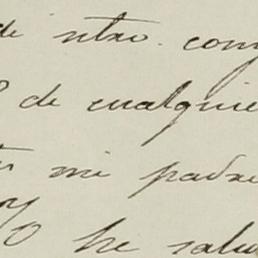 de otro. com
de cualquie
mi padre
he salu